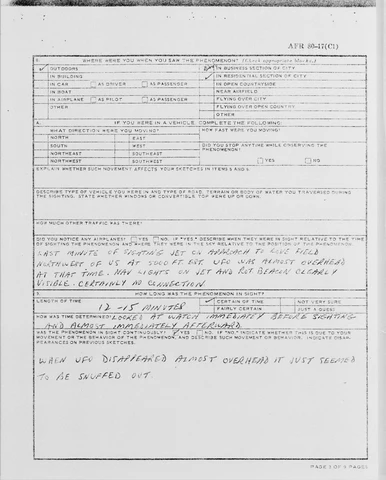 AFR 80-17(C1)
WHERE WERE YOU WHEN YOU SAW THE PHENOMENON? (Check appropriate blocks)
OUTDOORS
IN BUSINESS SECTION OF CITY
IN BUILDING
IN RESIDENTIAL SECTION OF CITY
IN CAR AS DRIVER AS PASSENGER
IN OPEN COUNTRYSIDE
IN BOAT
NEAR AIRFIELD
IN AIRPLANE AS PILOT AS PASSENGER
FLYING OVER CITY
OTHER
FLYING OVER OPEN COUNTRY
OTHER
A. IF YOU WERE IN A VEHICLE, COMPLETE THE FOLLOWING:
WHAT DIRECTION WERE YOU MOVING?
HOW FAST WERE YOU MOVING?
NORTH EAST
SOUTH WEST
DID YOU STOP ANYTIME WHILE OBSERVING THE
NORTHEAST SOUTHEAST
PHENOMENON?
NORTHWEST SOUTHWEST
YES NO
EXPLAIN WHETHER SUCH MOVEMENT AFFECTS YOUR SKETCHES IN ITEMS
DESCRIBE TYPE OF VEHICLE YOU WERE IN AND TYPE OF ROAD, TERRAIN OR BODY OF WATER YOU TRAVERSED DURING
THE SIGHTING. STATE WHETHER WINDOWS OR CONVERTIBLE TOP WERE UP OR DOWN.
HOW MUCH OTHER TRAFFIC WAS THERE?
DID YOU NOTICE ANY AIRPLANES? YES NO. IF "YES," DESCRIBE WHEN THEY WERE IN SIGHT RELATIVE TO THE TIME
OF SIGHTING THE PHENOMENON AND WHERE THEY WERE IN THE SKY RELATIVE TO THE POSITION OF THE PHENOMENON.
LAST MINUTE OF SIGHTING JET ON APPROACH TO LOVE FIELD
NORTHWEST OF US AT 5000 FT. EST. UFO WAS ALMOST OVERHEAD
AT THAT TIME. NAV LIGHTS ON JET AND ROT BEACON CLEARLY
VISIBLE. CERTAINLY NO CONNECTION.
HOW LONG WAS THE PHENOMENON IN SIGHT?
LENGTH OF TIME
12-15 MINUTES
CERTAIN OF TIME NOT VERY SURE
FAIRLY CERTAIN JUST A GUESS
HOW WAS TIME DETERMINED? LOOKED AT WATCH IMMEDIATELY BEFORE SIGHTING
AND ALMOST IMMEDIATELY AFTERWARD
WAS THE PHENOMENON IN SIGHT CONTINUOUSLY? YES NO. IF "NO," INDICATE WHETHER THIS IS DUE TO YOUR
MOVEMENT OR THE BEHAVIOR OF THE PHENOMENON, AND DESCRIBE SUCH MOVEMENT OR BEHAVIOR. INDICATE DISAP-
PEARANCES ON PREVIOUS SKETCHES.
WHEN UFO DISAPPEARED ALMOST OVERHEAD IT JUST SEEMED
TO BE SNUFFED OUT.
PAGE 3 OF 9 PAGES